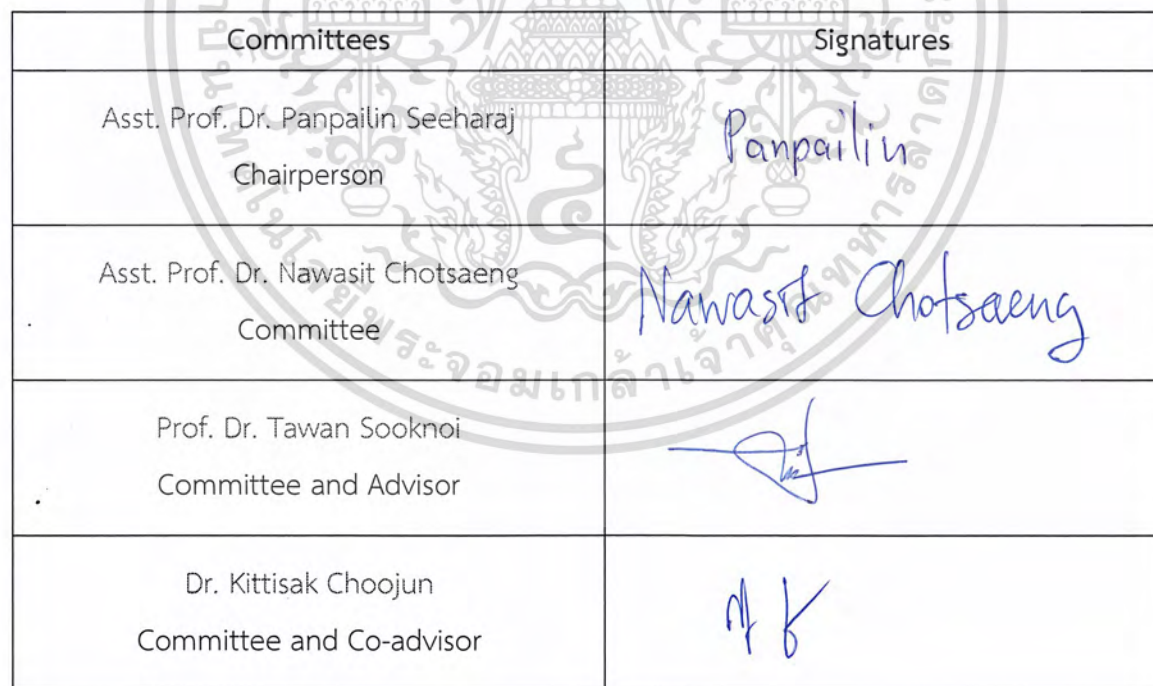 Committees
Signatures
Asst. Prof. Dr. Panpailin Seeharaj
Chairperson
Panpailin
Asst. Prof. Dr. Nawasit Chotsaeng
Committee
Nawasit Chotsaeng
Prof. Dr. Tawan Sooknoi
Committee and Advisor
Dr. Kittisak Choojun
Committee and Co-advisor
พระจอมเกล้าเจ้าคุณทหารลาดกระ